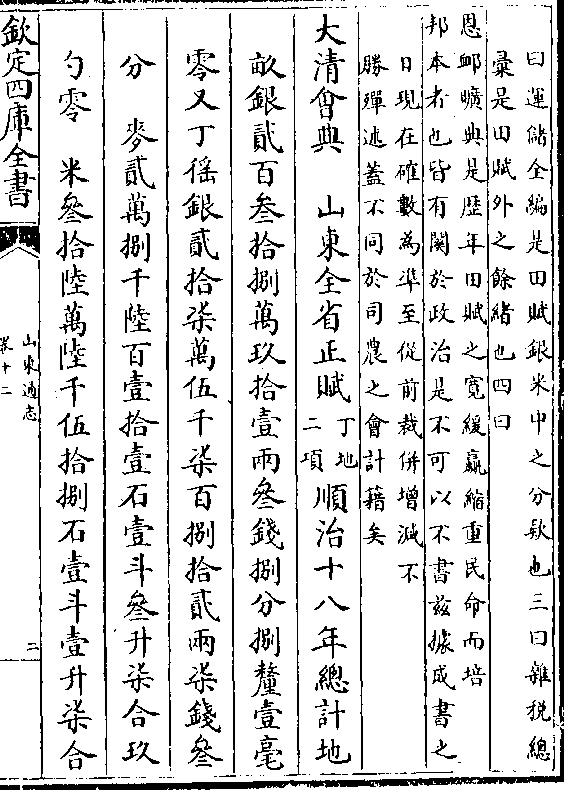 曰運儲全編是田賦銀米中之分欵也三曰雜稅總
彚是田賦外之餘緒也四曰
恩䘏曠典是歴年田賦之寛緩贏縮重民命而培
邦本者也皆有闗於政治是不可以不書兹據成書之
日現在確數為凖至從前裁併增減不
勝殫述蓋不同於司農之會計籍矣
大清會典　山東全省正賦丁地二項順治十八年總計地
畝銀貳百叁拾捌萬玖拾壹兩叁錢捌分捌釐壹毫
零又丁徭銀貳拾柒萬伍千柒百捌拾貳兩柒錢叁
分　麥貳萬捌千陸百壹拾壹石壹斗叁升柒合玖
勺零　米叁拾陸萬陸千伍拾捌石壹斗壹升柒合
欽定四庫全書
山東通志
卷十二
二